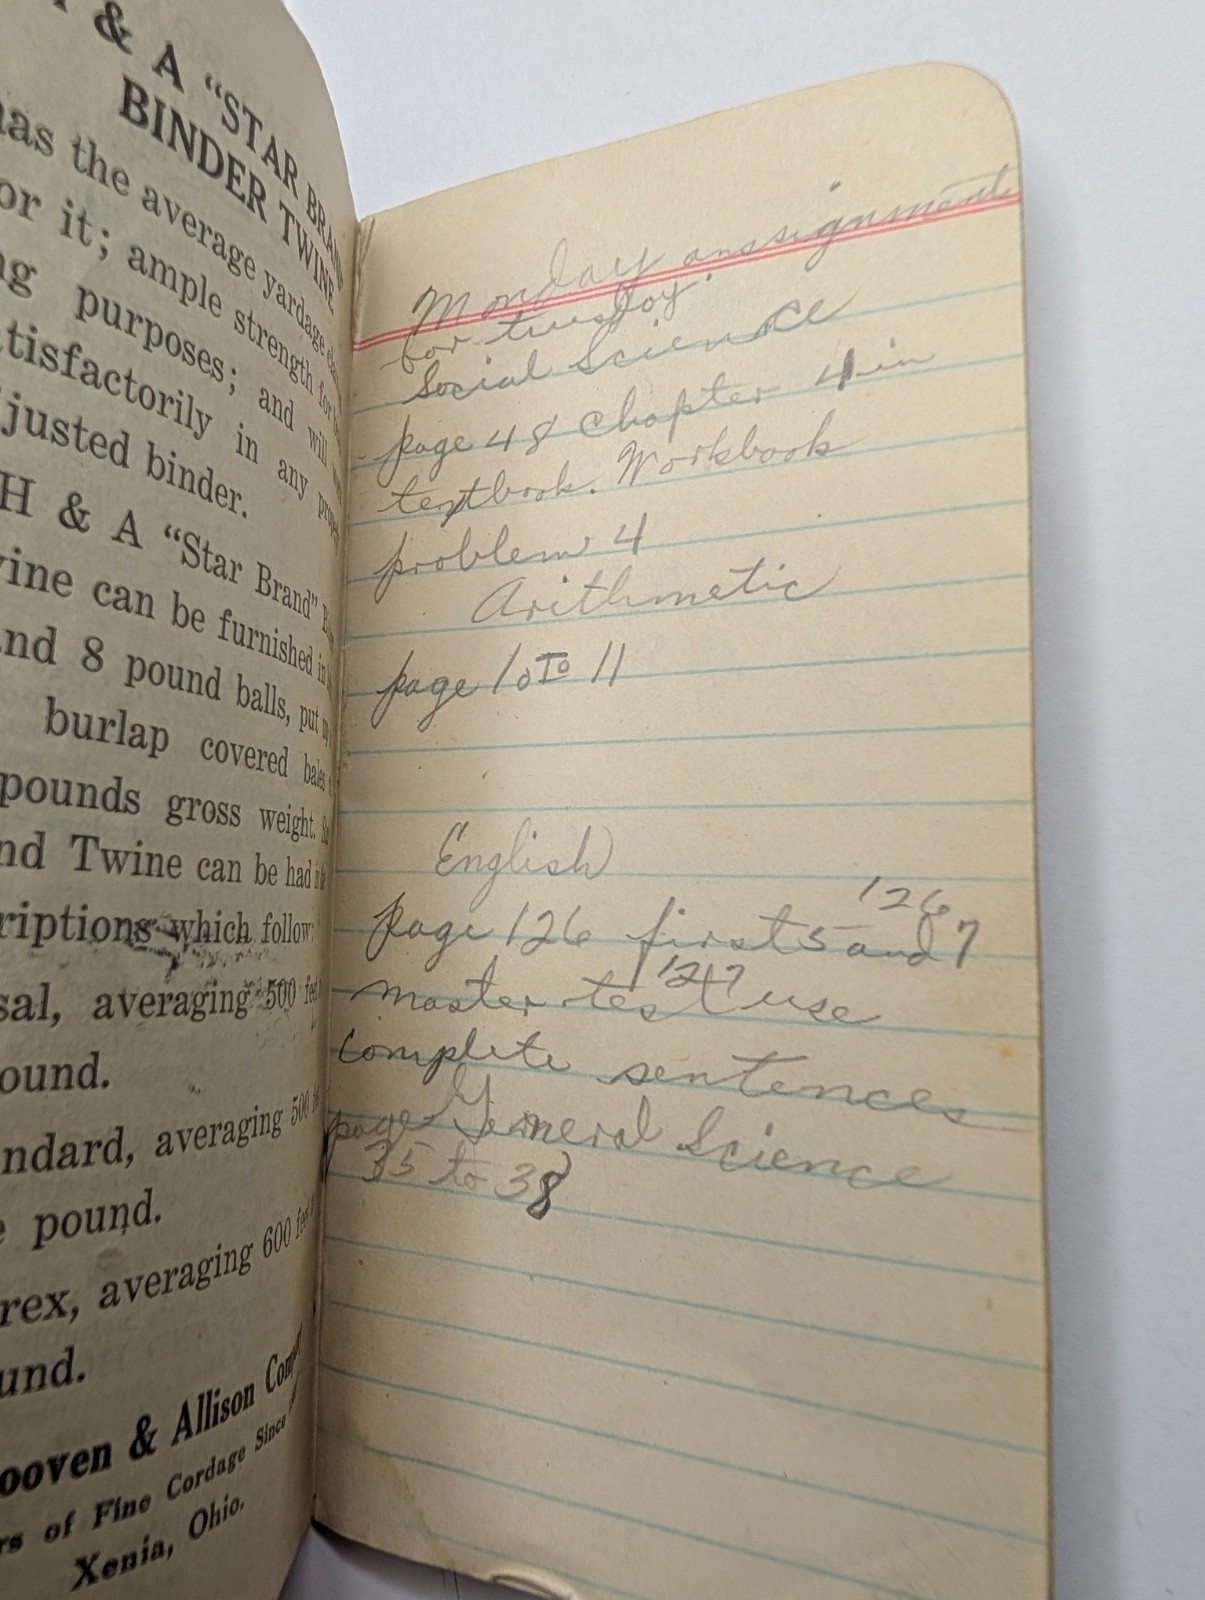 & A "STAR BRAND"
BINDER TWINE
has the average yardage
or it; ample strength for
purposes; and will
tisfactorily in any
justed binder.
H & A "Star Brand"
ine can be furnished in
nd 8 pound balls, put up
burlap covered bales
pounds gross weight.
nd Twine can be had in the
riptions which follow:
sal, averaging 500 feet
ound.
ndard, averaging 500
pound.
rex, averaging 600 feet
und.
ooven & Allison Company
rs of Fine Cordage Since
Xenia, Ohio.
Monday anssignment
for tuesday
Social Science
page 48 Chapter 4 in
textbook. Workbook
problem 4
Arithmetic
page 10 To 11
English
126
page 126 first 5 and 7
127
master test use
complete sentences
page General Science
35 to 38